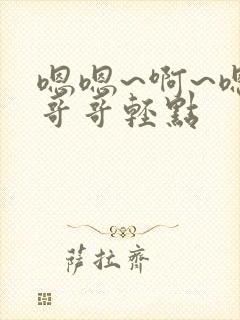 嗯嗯~啊~嗯
哥哥轻點
萨拉齊